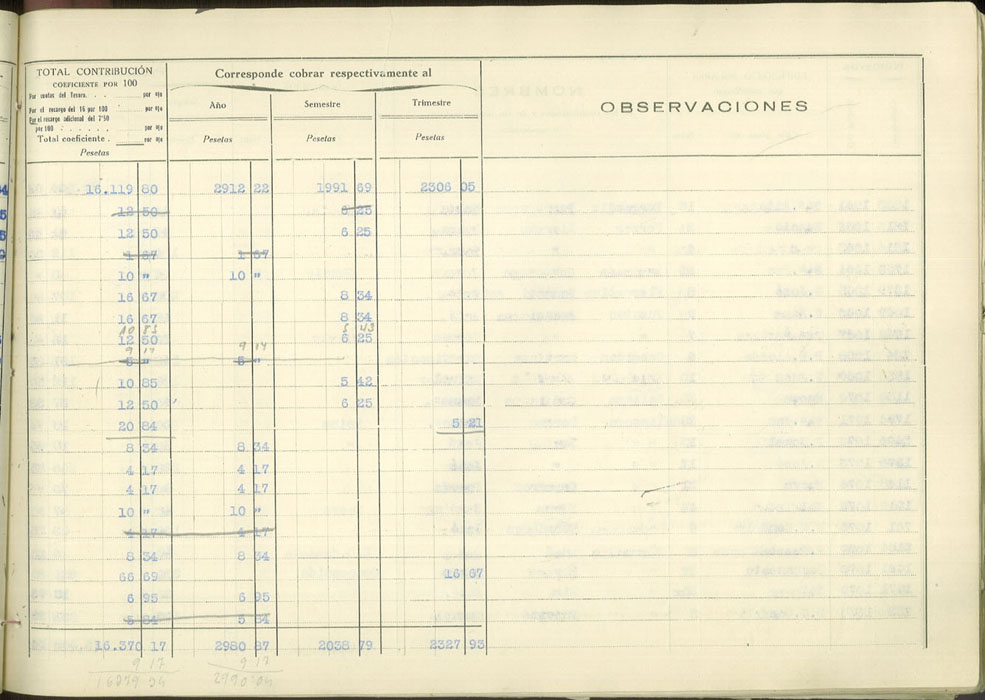 TOTAL CONTRIBUCIÓN
COEFICIENTE POR 100
Por cuotas del Tesoro. . . por o|o
Por el recargo del 16 por 100 por o|o
Por el recargo adicional del 7'50
por 100 . . . . . . por o|o
Total coeficiente . por o|o
Pesetas
Corresponde cobrar respectivamente al
Año Semestre Trimestre
Pesetas Pesetas Pesetas
OBSERVACIONES
16.119 80 2912 22 1991 69 2306 05
12 50 6 25
12 50 6 25
1 67 1 67
10 " 10 "
16 67 8 34
16 67 8 34
10 83 5 43
12 50 6 25
9 17 9 17
5 " 5 "
10 85 5 42
12 50 6 25
20 84 5 21
8 34 8 34
4 17 4 17
4 17 4 17
10 " 10 "
4 17 4 17
8 34 8 34
66 69 16 67
6 95 6 95
5 84 5 84
16.370 17 2980 87 2038 79 2327 93
9 17 9 17
16379 34 2990 04